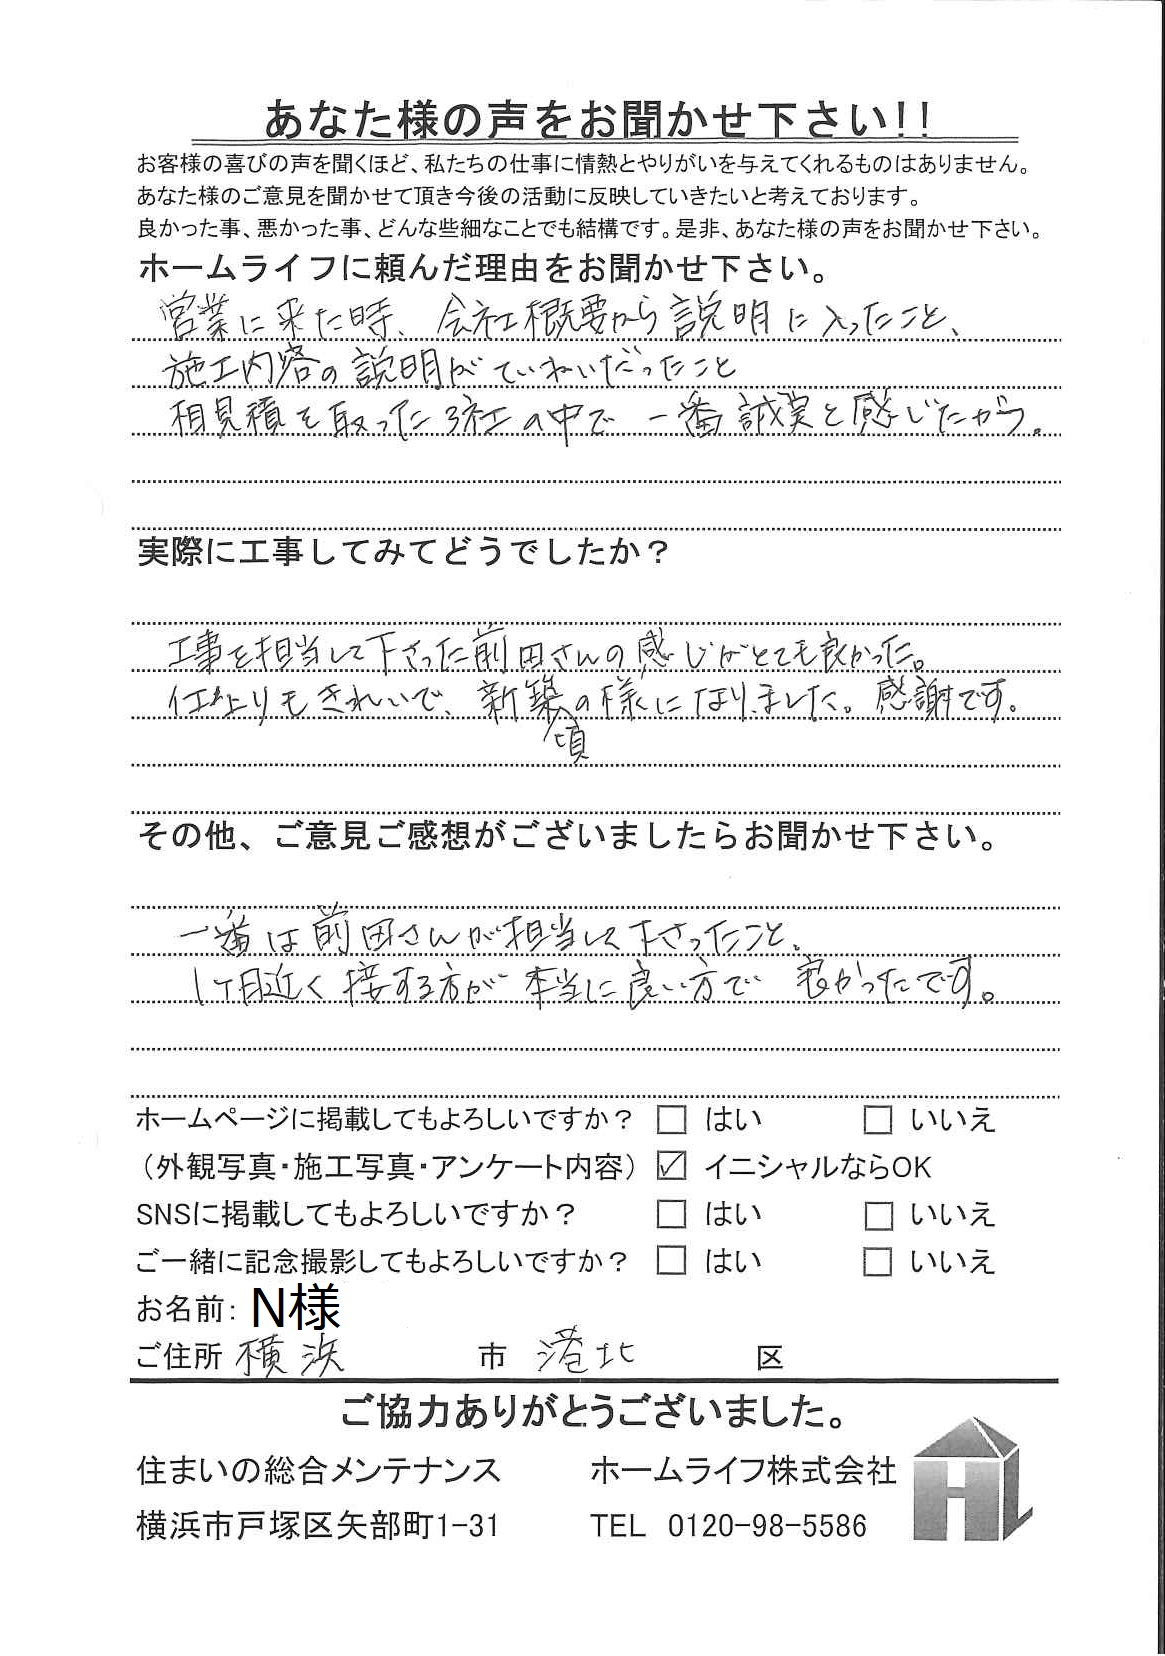 あなた様の声をお聞かせ下さい!!
お客様の喜びの声を聞くほど、私たちの仕事に情熱とやりがいを与えてくれるものはありません。
あなた様のご意見を聞かせて頂き今後の活動に反映していきたいと考えております。
良かった事、悪かった事、どんな些細なことでも結構です。是非、あなた様の声をお聞かせ下さい。
ホームライフに頼んだ理由をお聞かせ下さい。
営業に来た時、会社概要から説明に入ったこと、
施工内容の説明がていねいだったこと
相見積を取った3社の中で一番誠実と感じたから。
実際に工事してみてどうでしたか？
工事を担当して下さった前田さんの感じがとても良かった。
仕上りもきれいで、新築頃の様になりました。感謝です。
その他、ご意見ご感想がございましたらお聞かせ下さい。
一番は前田さんが担当して下さったこと。
1ヶ月近く接する方が本当に良い方で良かったです。
ホームページに掲載してもよろしいですか？ □ はい □ いいえ
（外観写真・施工写真・アンケート内容） ☑ イニシャルならOK
SNSに掲載してもよろしいですか？ □ はい □ いいえ
ご一緒に記念撮影してもよろしいですか？ □ はい □ いいえ
お名前: N様
ご住所 横浜 市 港北 区
ご協力ありがとうございました。
住まいの総合メンテナンス ホームライフ株式会社
横浜市戸塚区矢部町1-31 TEL 0120-98-5586
HL